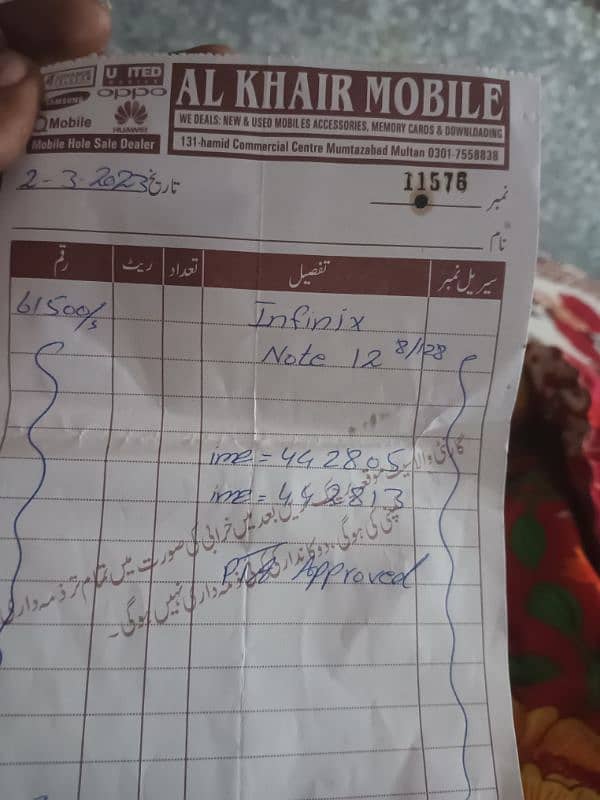 UNITED
MOBILE
SAMSUNG
oppo
QMobile
HUAWEI
Mobile Hole Sale Dealer
AL KHAIR MOBILE
WE DEALS: NEW & USED MOBILES ACCESSORIES, MEMORY CARDS & DOWNLOADING
131-hamid Commercial Centre Mumtazabad Multan 0301-7558838
تاریخ 2-3-2023
نمبر 11576
نام
سیریل نمبر تفصیل تعداد ریٹ رقم
Infinix 61500/s
Note 12 8/128
ime = 442805
ime = 442813
PTA Approved
گارنٹی والا سیٹ موقع پر چیک کریں بعد میں خرابی کی صورت میں تمام تر ذمہ داری
کمپنی کی ہوگی، دوکاندار کی ذمہ داری نہیں ہوگی۔